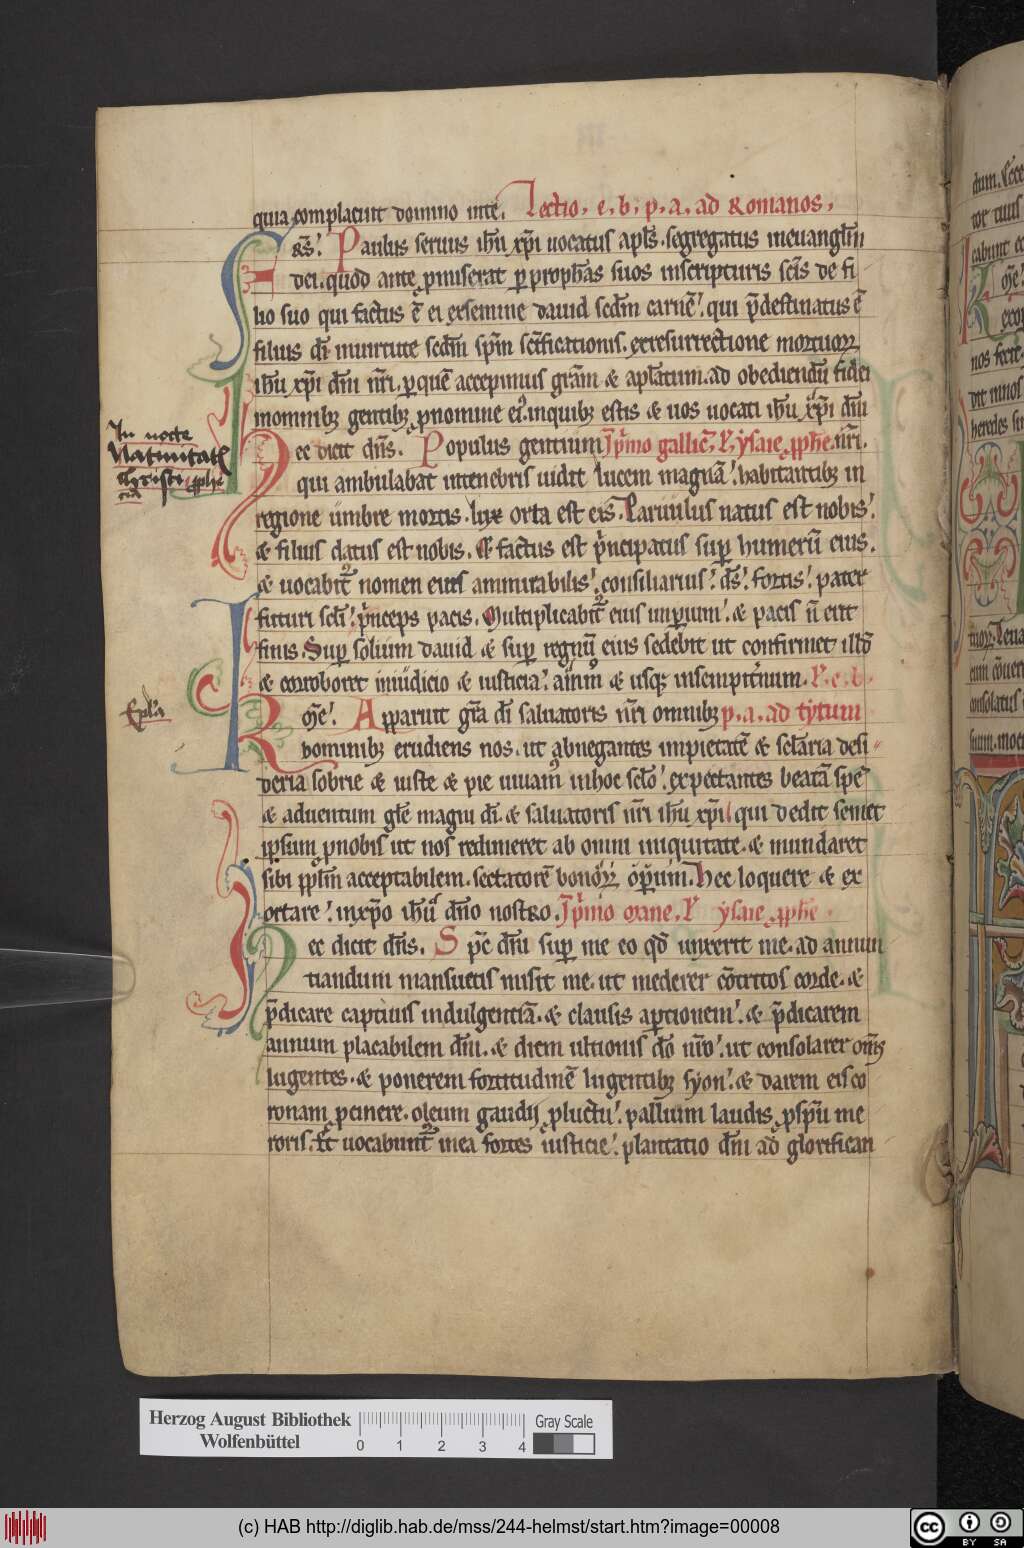 quia complacuit domino in te. Lectio. e. b. p. a. ad Romanos.
FRS. Paulus seruus ihu xpi uocatus apls. segregatus ineuanglm
dei. quod ante pmiserat p prophas suos inscripturis scis de fi
lio suo qui factus ē ei exsemine dauid scdm carnē. qui pdestinatus ē
filius di inuirtute scdm spm scificationis. exresurrectione mortuoꝝ
ihu xpi dni nri. p quē accepimus gram & aplatum. ad obediendū fidei
inomnibꝫ gentibꝫ pnomine ei. inquibꝫ estis & uos uocati ihu xpi dni
Hec dicit dns. Populus gentium Jn pmo gallic. L. ysaie pphe. nri.
qui ambulabat intenebris uidit lucem magnā. habitantibꝫ in
regione umbre mortis. lux orta est eis. Paruulus natus est nobis.
& filius datus est nobis. Et factus est pncipatus sup humerū eius.
& uocabit nomen eius ammirabilis. consiliarius. ds. fortis. pater
futuri scli. pnceps pacis. Multiplicabit eius impium. & pacis n erit
finis. Sup solium dauid & sup regnū eius sedebit ut confirmet illd
& corroboret iniudicio & iusticia. amm & usqꝫ insempitnum. L. e. b.
KRme. Apparuit gra di saluatoris nri omnibꝫ p. a. ad tytum
hominibꝫ erudiens nos. ut abnegantes impietatē & sclaria desi
deria sobrie & iuste & pie uiuam inhoc sclo. expectantes beatā spē
& aduentum gle magni di. & saluatoris nri ihu xpi qui dedit semet
ipsum pnobis ut nos redimeret ab omni iniquitate. & mundaret
sibi pplm acceptabilem. sectatorē bonoꝝ opum. Hec loquere & ex
ortare. inxpo ihu dno nostro. Jn pmo mane. L ysaie pphe.
Hec dicit dns. Spc dni sup me eo qd unxerit me. ad annun
tiandum mansuetis misit me. ut mederer cōtritos corde. &
pdicare captiuis indulgentiā. & clausis aptionem. & pdicarem
annum placabilem dni. & diem ultionis do nro. ut consolarer oms
lugentes. & ponerem fortitudinē lugentibꝫ syon. & darem eis co
ronam pcinere. oleum gaudij pluctu. pallium laudis pspu me
roris. Et uocabunt inea fortes iusticie. plantatio dni ad glorifican
In nocte
Natiuitatis
Christi pphe
Epla
Herzog August Bibliothek
Wolfenbüttel
0 1 2 3 4
Gray Scale
(c) HAB http://diglib.hab.de/mss/244-helmst/start.htm?image=00008
cc BY SA